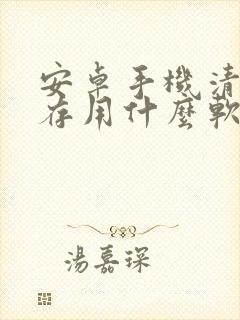 安卓手機清
存用什麼軟
湯嘉琛